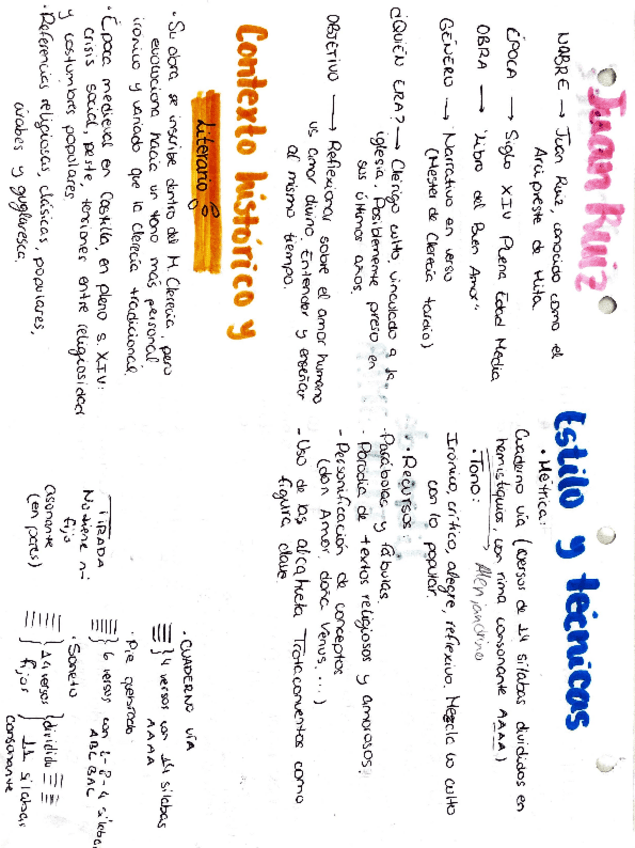 Juan Ruiz
NOBRE → Juan Ruiz, conocido como el
Arcipreste de Hita.
ÉPOCA → Siglo XIV Plena Edad Media
OBRA → "Libro del Buen Amor"
GÉNERO → Narrativo en verso
(Mester de Clerecía tardío)
¿QUIÉN ERA? → Clérigo culto, vinculado a la
iglesia. Posiblemente preso en
sus últimos años.
OBJETIVO → Reflexionar sobre el amor humano
vs amor divino. Entender y enseñar
al mismo tiempo.
Contexto histórico y
literario
• Su obra se inscribe dentro del M. Clerecía, pero
evoluciona hacia un tono más personal,
irónico y variado que la clerecía tradicional
• Época medieval en Castilla, en pleno s. XIV:
crisis social, peste, tensiones entre religiosidad
y costumbres populares.
• Referencias religiosas, clásicas, populares,
árabes y juglaresca.
Estilo y técnicas
• Métrica:
Cuaderno vía (versos de 14 sílabas divididos en
hemistiquios, con rima consonante AAAA)
→ Alenjandrino
• Tono:
Irónico, crítico, alegre, reflexivo. Mezcla lo culto
con lo popular.
• Recursos:
- Parábolas y fábulas.
- Parodia de textos religiosos y amorosos.
- Personificación de conceptos
(don Amor, doña Venus, ...)
- Uso de las alcahueta Trotaconventos como
figura clave.
TIRADA
No tiene nº
fijo
asonante
(en pares)
• CUADERNO VÍA
} 4 versos con 14 sílabas
AAAA
• Pie quebrado
} 6 versos con 8-8-4 sílabas
ABC BAC
• Soneto
} 14 versos
fijos
} dividido
} 11 sílabas
consonante